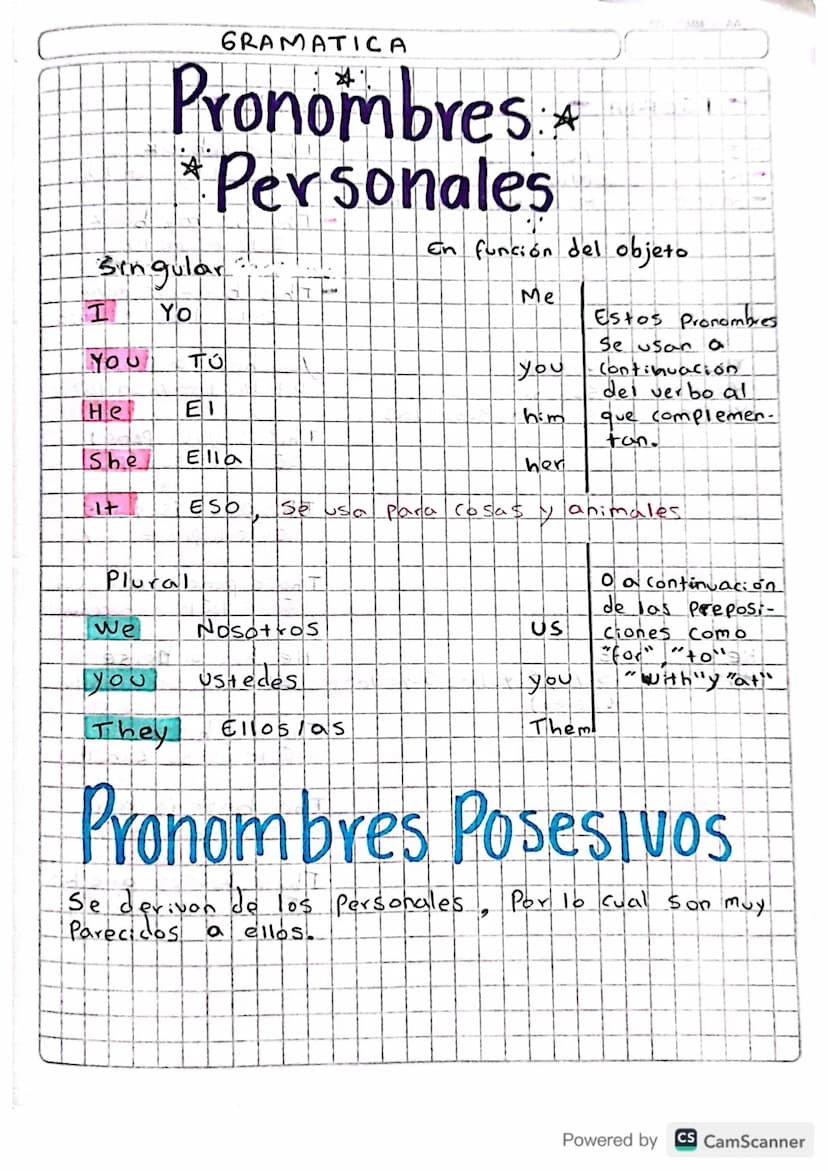 GRAMATICA
Pronombres
Personales
En función del objeto
Singular
I Yo Me
You TÚ you
He El him
She Ella her
It ESO, se usa para cosas y animales
Estos Pronombres
se usan a
continuación
del verbo al
que complemen-
tan.
Plural
We Nosotros us
you ustedes you
They Ellos/as Them
O a continuación
de las preposi-
ciones como
"for", "to",
"with" y "at"
Pronombres Posesivos
Se derivan de los Personales, Por lo cual son muy
Parecidos a ellos.
Powered by CS CamScanner